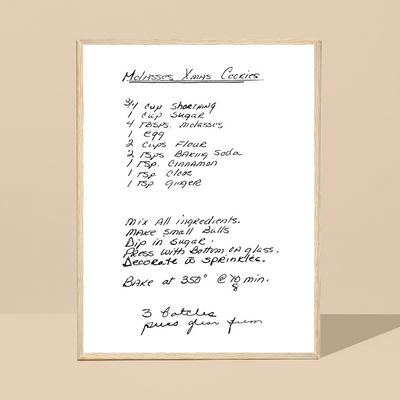 Molasses Xmas Cookies
3/4 cup shortning
1 cup sugar
4 TBSPS. Molasses
1 egg
2 cups Flour
2 Tsps Baking Soda
1 Tsp. Cinnamon
1 Tsp. Clove
1 Tsp Ginger
Mix All ingredients.
Make small Balls
Dip in Sugar.
Press with Bottom of glass.
Decorate w sprinkles.
Bake at 350° @ 10 min.
8
3 batches